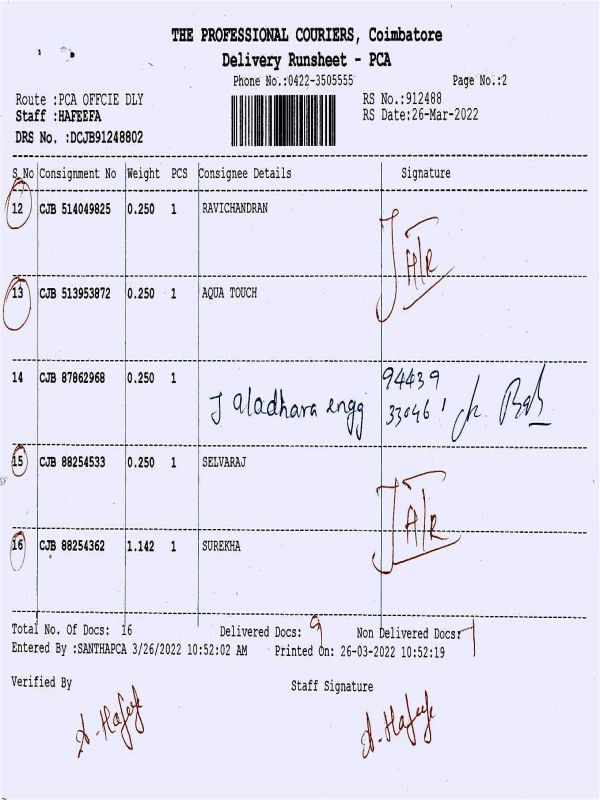 THE PROFESSIONAL COURIERS, Coimbatore
Delivery Runsheet - PCA
Phone No.:0422-3505555 Page No.:2
Route :PCA OFFCIE DLY RS No.:912488
Staff :HAFEEFA RS Date:26-Mar-2022
DRS No. :DCJB91248802
S No Consignment No Weight PCS Consignee Details Signature
12 CJB 514049825 0.250 1 RAVICHANDRAN
A/R
13 CJB 513953872 0.250 1 AQUA TOUCH
14 CJB 87862968 0.250 1 94439
Jaladhara engg 33046
15 CJB 88254533 0.250 1 SELVARAJ
A/R
16 CJB 88254362 1.142 1 SUREKHA
Total No. Of Docs: 16 Delivered Docs: 9 Non Delivered Docs: 7
Entered By :SANTHAPCA 3/26/2022 10:52:02 AM Printed On: 26-03-2022 10:52:19
Verified By Staff Signature